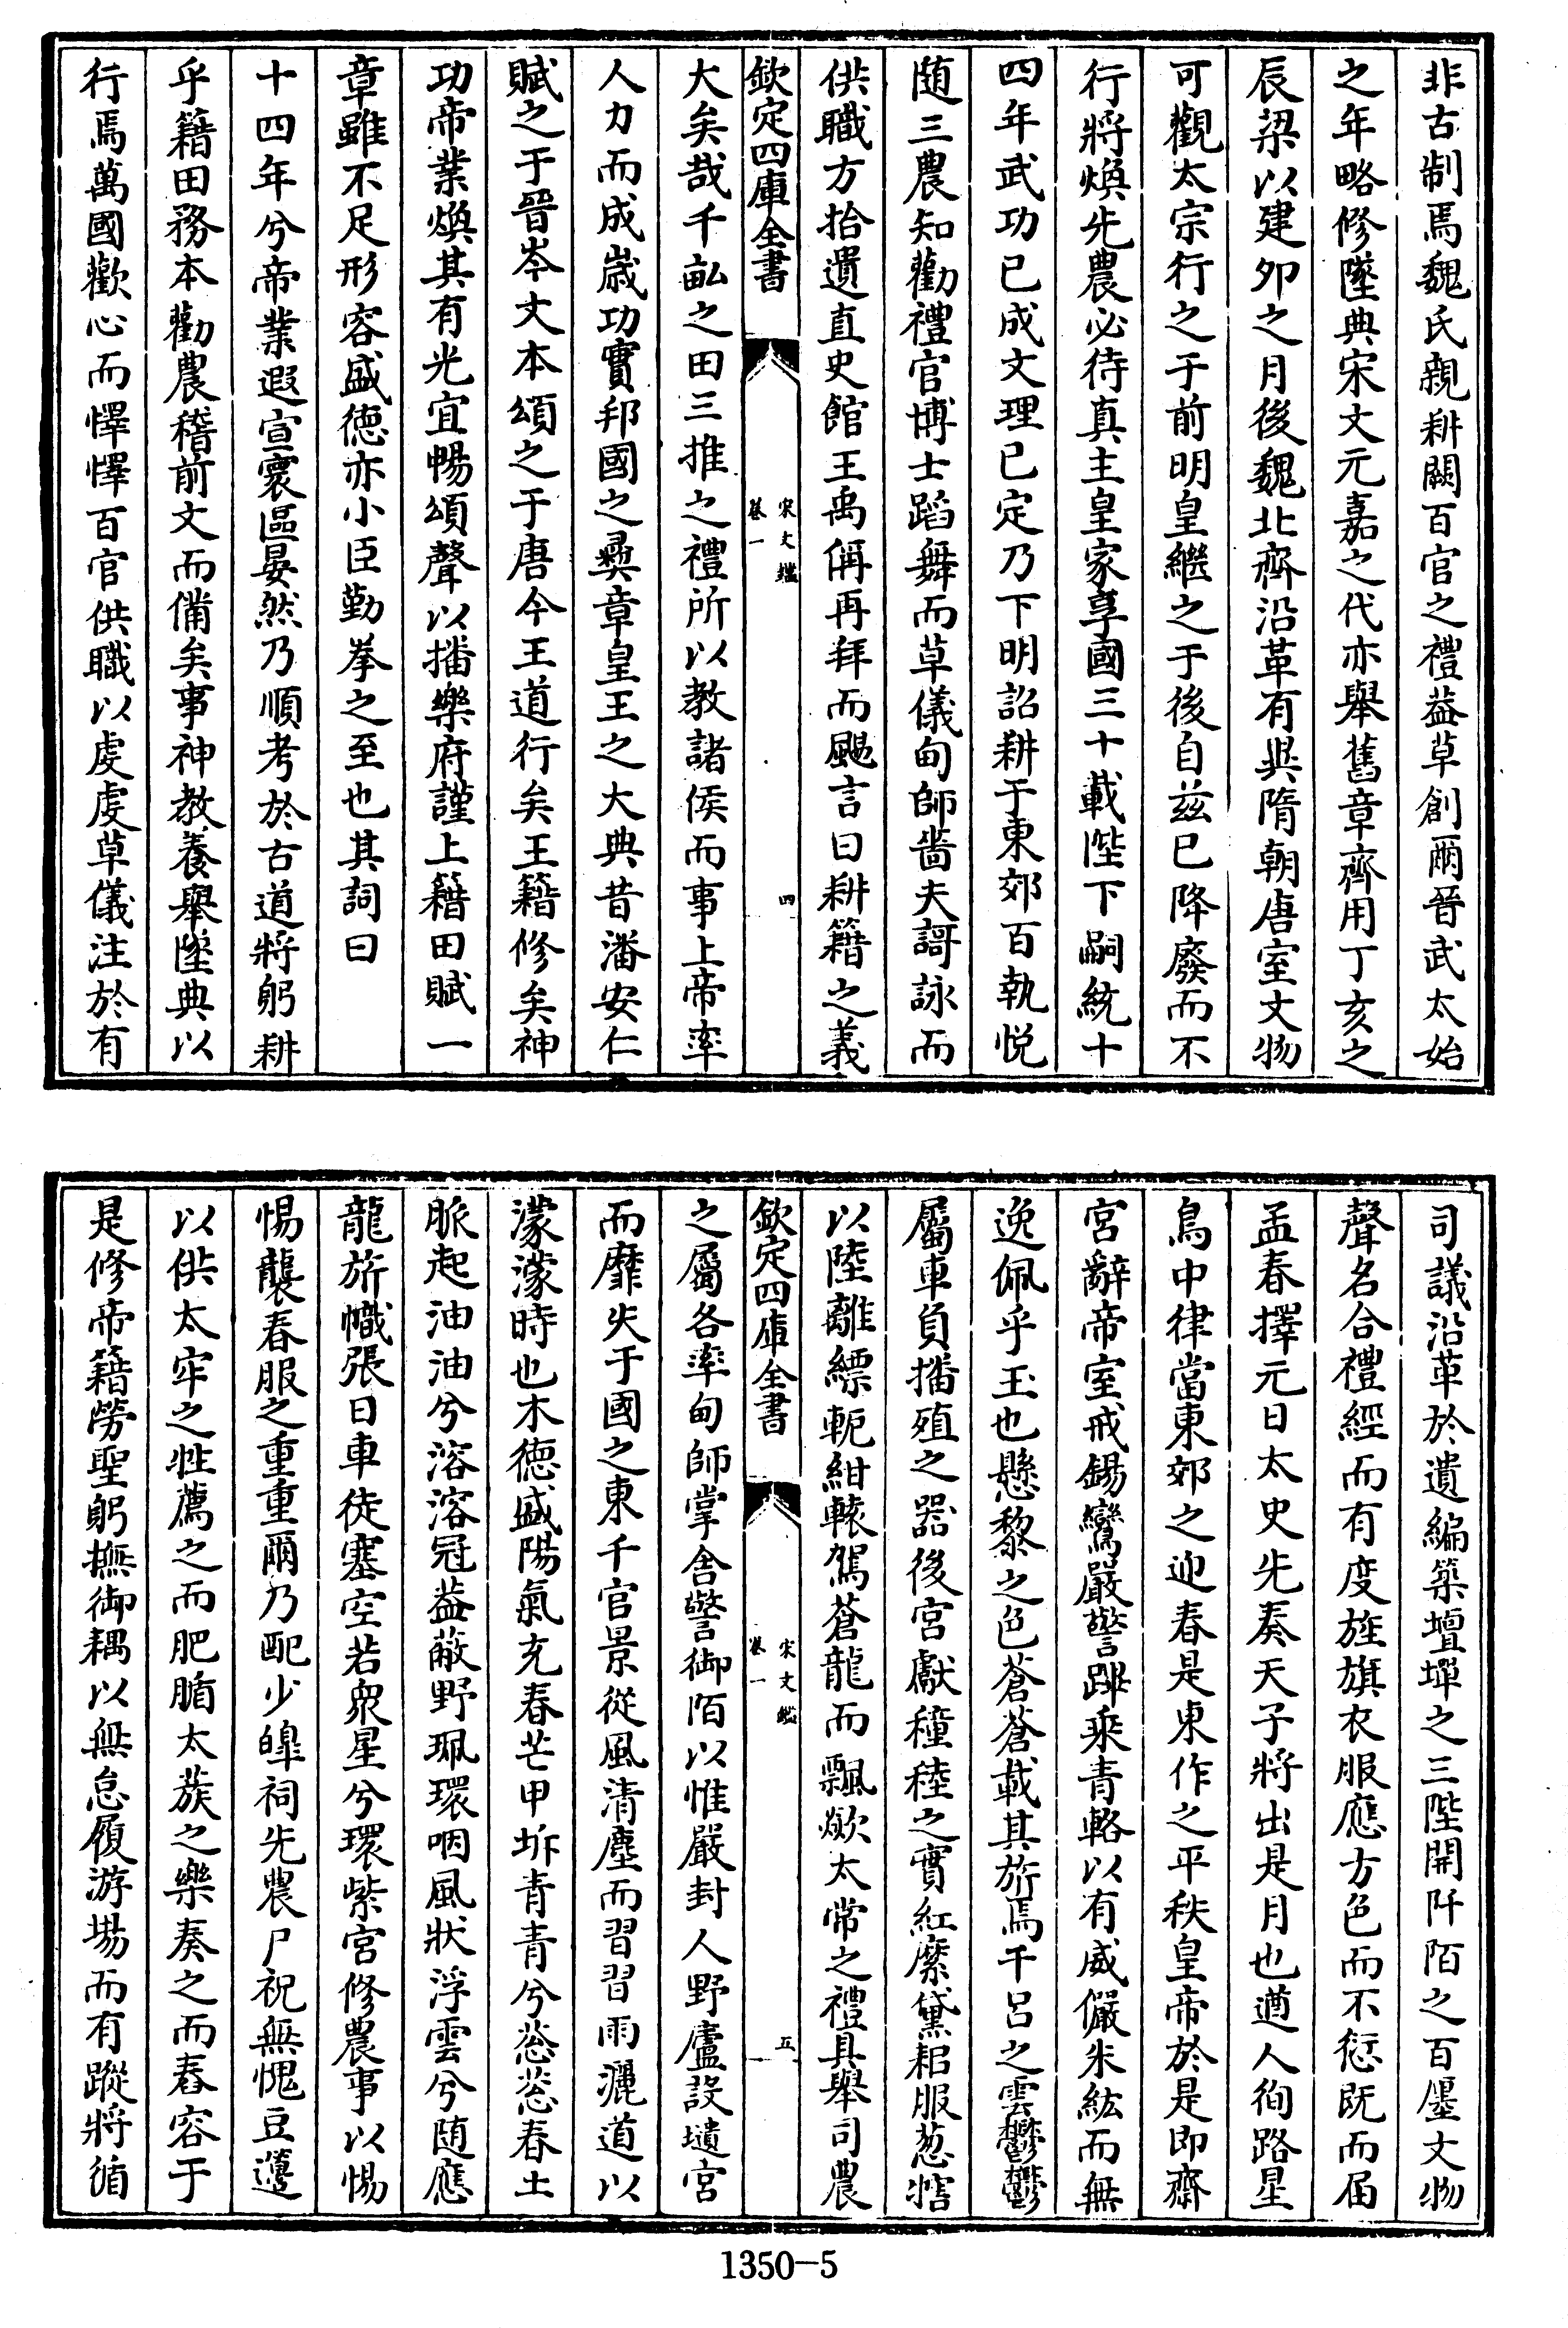 非古制焉魏氏親耕闕百官之禮蓋草創爾晉武太始
之年略修墜典宋文元嘉之代亦舉舊章齊用丁亥之
辰梁以建夘之月後魏北齊沿革有異隋朝唐室文物
可觀太宗行之于前明皇繼之于後自兹已降廢而不
行將煥先農必待真主皇家享國三十載陛下嗣統十
四年武功已成文理已定乃下明詔耕于東郊百執悦
随三農知勸禮官博士蹈舞而草儀甸師嗇夫謌詠而
供職方拾遺直史館王禹偁再拜而颺言曰耕籍之義
欽定四庫全書
宋文鑑
卷一
四
大矣哉千畝之田三推之禮所以教諸侯而事上帝率
人力而成歳功實邦國之彞章皇王之大典昔潘安仁
賦之于晉岑文本頌之于唐今王道行矣王籍修矣神
功帝業煥其有光宜暢頌聲以播樂府謹上籍田賦一
章雖不足形容盛徳亦小臣勤拳之至也其詞曰
十四年兮帝業遐宣寰區晏然乃順考於古道將躬耕
乎籍田務本勸農稽前文而備矣事神教養舉墜典以
行焉萬國歡心而懌懌百官供職以虔虔草儀注於有
司議沿革於遺編築壇墠之三陛開阡陌之百㕓文物
聲名合禮經而有度旌旗衣服應方色而不愆既而届
孟春擇元日太史先奏天子將出是月也遒人徇路星
鳥中律當東郊之迎春是東作之平秩皇帝於是即齋
宮辭帝室戒錫鸞嚴警蹕乘青輅以有威儼朱紘而無
逸佩乎玉也懸黎之色蒼蒼載其旂焉千吕之雲鬱鬱
屬車負播殖之器後宮獻穜稑之實紅縻黛耜服葱犗
以陸離縹軛紺轅駕蒼龍而飄欻太常之禮具舉司農
欽定四庫全書
宋文鑑
卷一
五
之屬各率甸師掌舍警御陌以惟嚴封人野廬設壝宮
而靡失于國之東千官景從風清塵而習習雨灑道以
濛濛時也木徳盛陽氣充春芒甲坼青青兮苾苾春土
脈起油油兮溶溶冠蓋蔽野珮環咽風狀浮雲兮随應
龍旂幟張日車徒塞空若衆星兮環紫宮修農事以惕
惕襲春服之重重爾乃配少皥祠先農尸祝無愧豆籩
以供太牢之牲薦之而肥腯太蔟之樂奏之而舂容于
是修帝籍勞聖躬撫御耦以無怠履游場而有蹤將循
1350-5